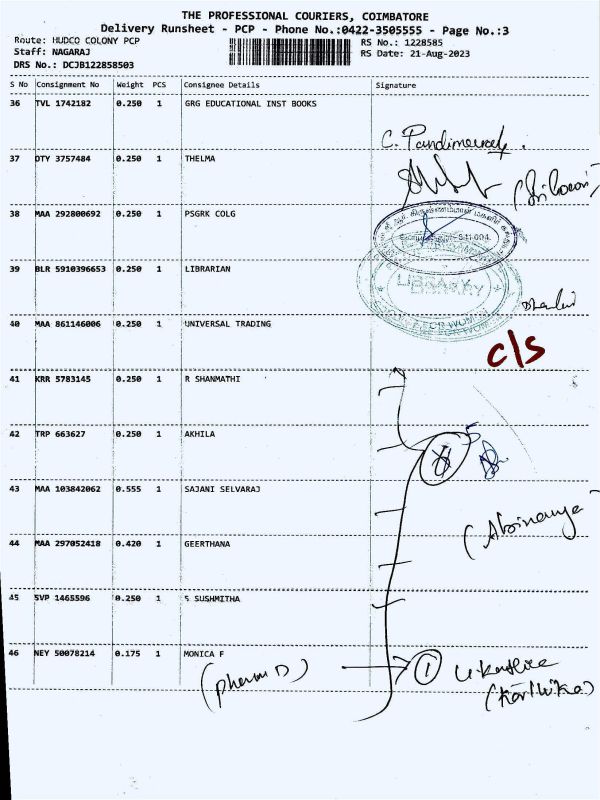 THE PROFESSIONAL COURIERS, COIMBATORE
Delivery Runsheet - PCP - Phone No.:0422-3505555 - Page No.:3
Route: HUDCO COLONY PCP
RS No.: 1228585
Staff: NAGARAJ
RS Date: 21-Aug-2023
DRS No.: DCJB122858503
S No Consignment No Weight PCS Consignee Details Signature
36 TVL 1742182 0.250 1 GRG EDUCATIONAL INST BOOKS
C. Pandimeenal.
37 DTY 3757484 0.250 1 THELMA
38 MAA 292800692 0.250 1 PSGRK COLG
641 004
39 BLR 5910396653 0.250 1 LIBRARIAN
LIBRARY
FOR WOMEN
40 MAA 861146006 0.250 1 UNIVERSAL TRADING
c/s
41 KRR 5783145 0.250 1 R SHANMATHI
42 TRP 663627 0.250 1 AKHILA
5
43 MAA 103842062 0.555 1 SAJANI SELVARAJ
(Abinaya
44 MAA 297052418 0.420 1 GEERTHANA
45 SVP 1465596 0.250 1 S SUSHMITHA
46 NEY 50078214 0.175 1 MONICA F
(Pharm D) 1
(Karthika)